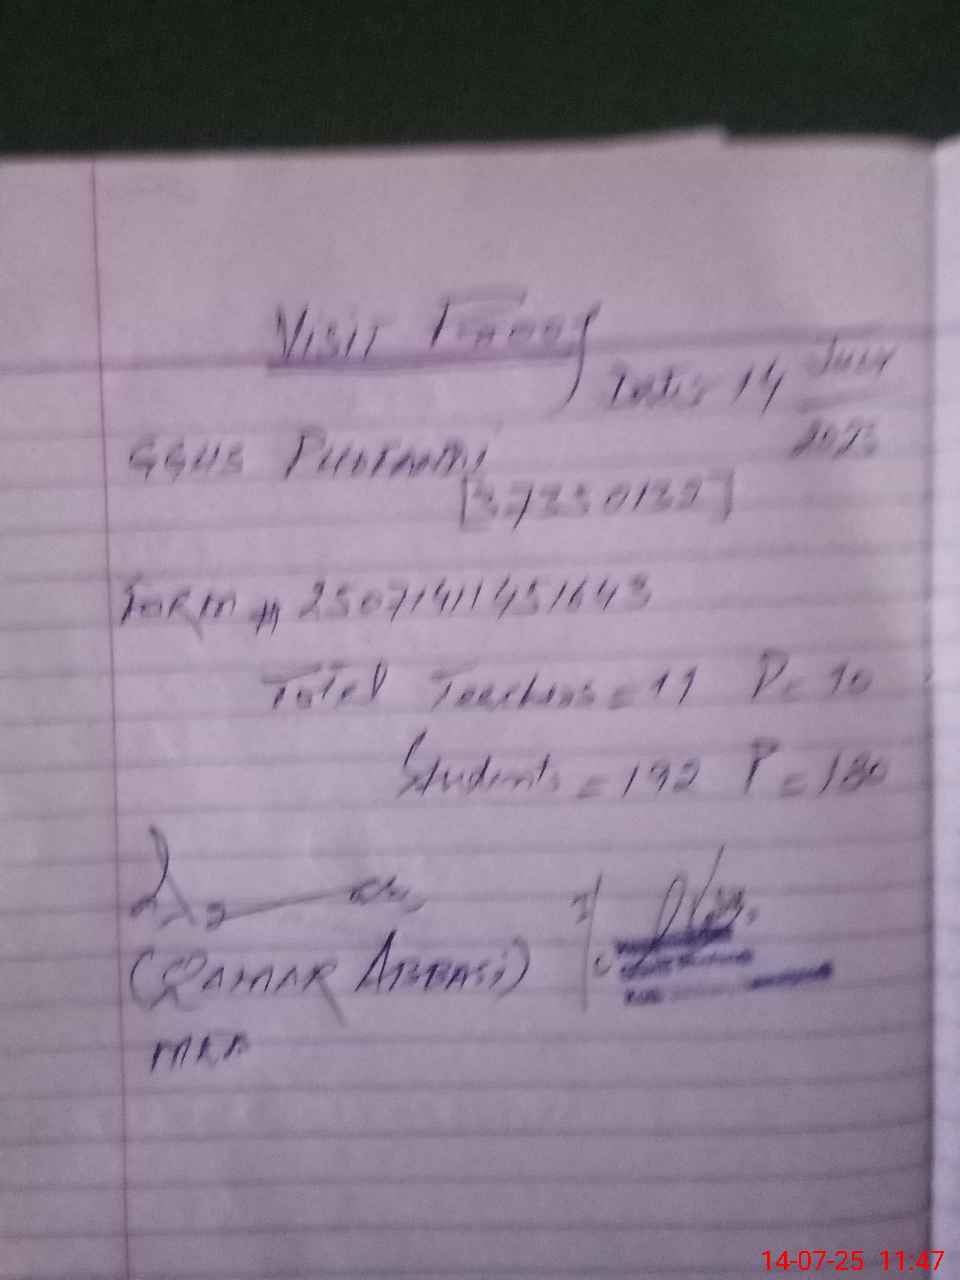 Visit Proof
Date: 14 July
2025
GGHS Phofandi
[37330132]
Form # 25071411451643
Total Teachers = 11 P = 10
Students = 192 P = 180
(Qamar Abbasi)
MEA
14-07-25 11:47